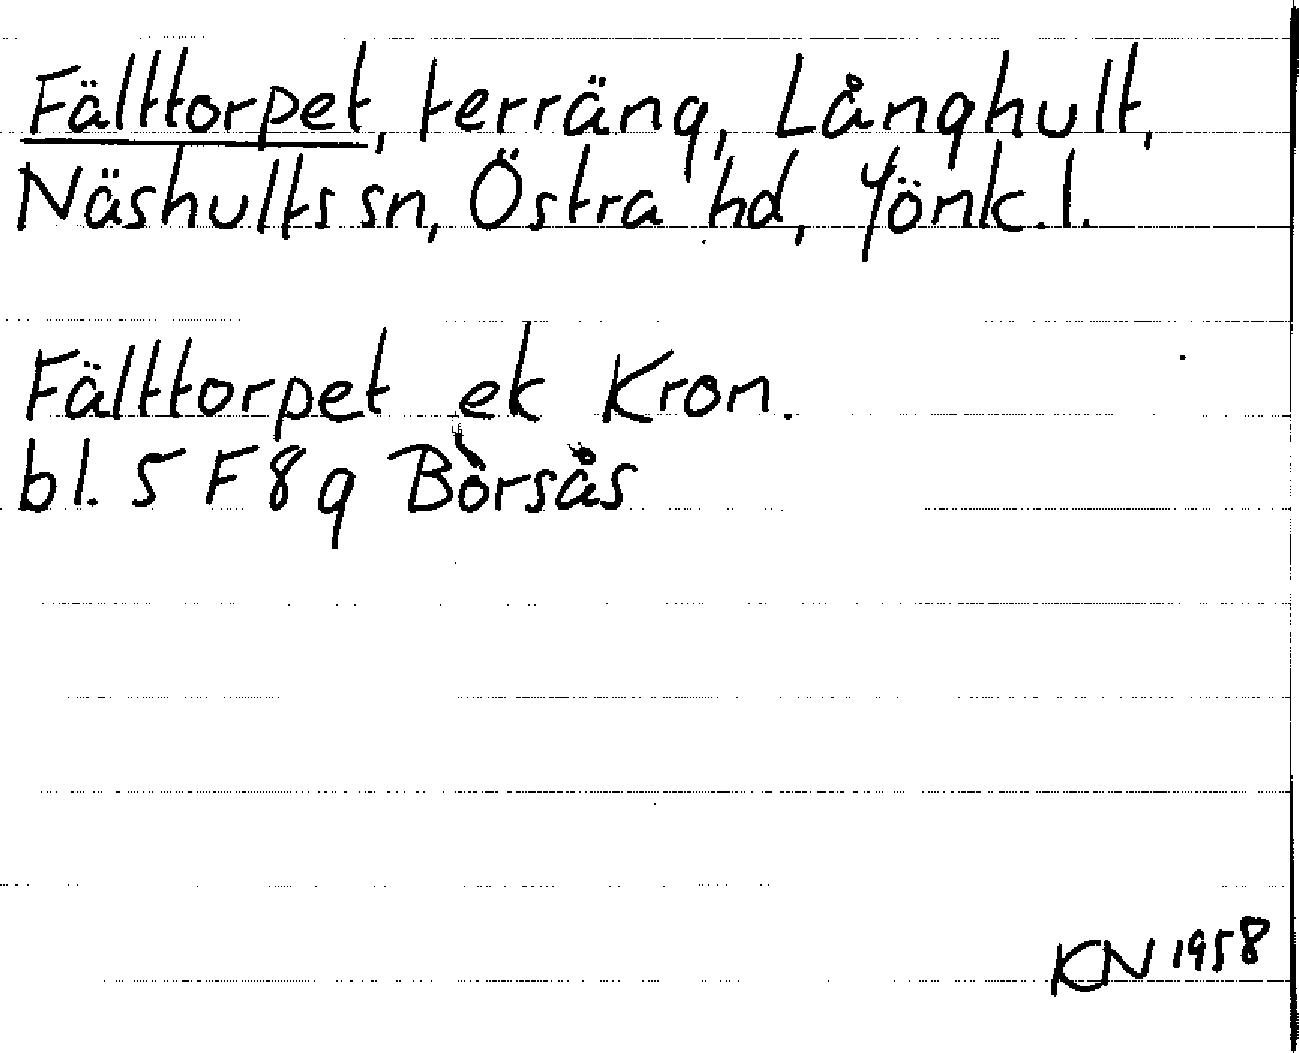 Fälttorpet, terräng, Långhult,
Näshults sn, Östra hd, Jönk. l.
Fälttorpet ek Kron.
bl. 5 F 8 g Börsås
KN 1958